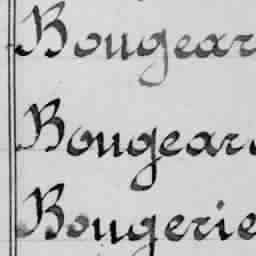 Bougear
Bougear
Bougerie